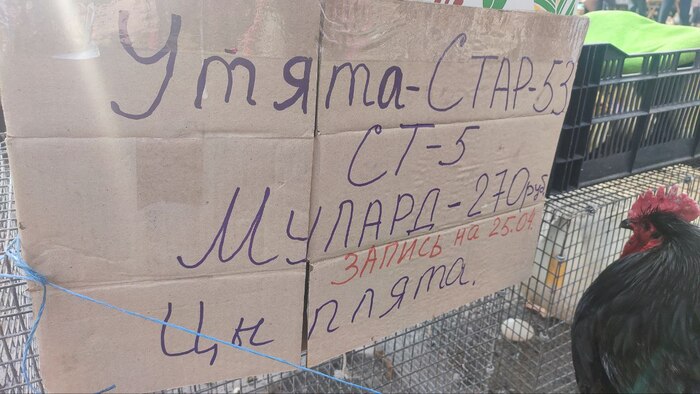 Утята-СТАР-53
СТ-5
МУЛАРД-270руб
ЗАПИСЬ на 25.04.
Цн плята.